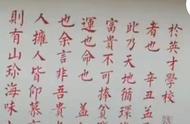 於英才學校
者也辛丑孟
此乃天地循環
富貴不可捧貧
運也命也
也余言非吾貴
人擁人皆仰慕
則有山珍海味